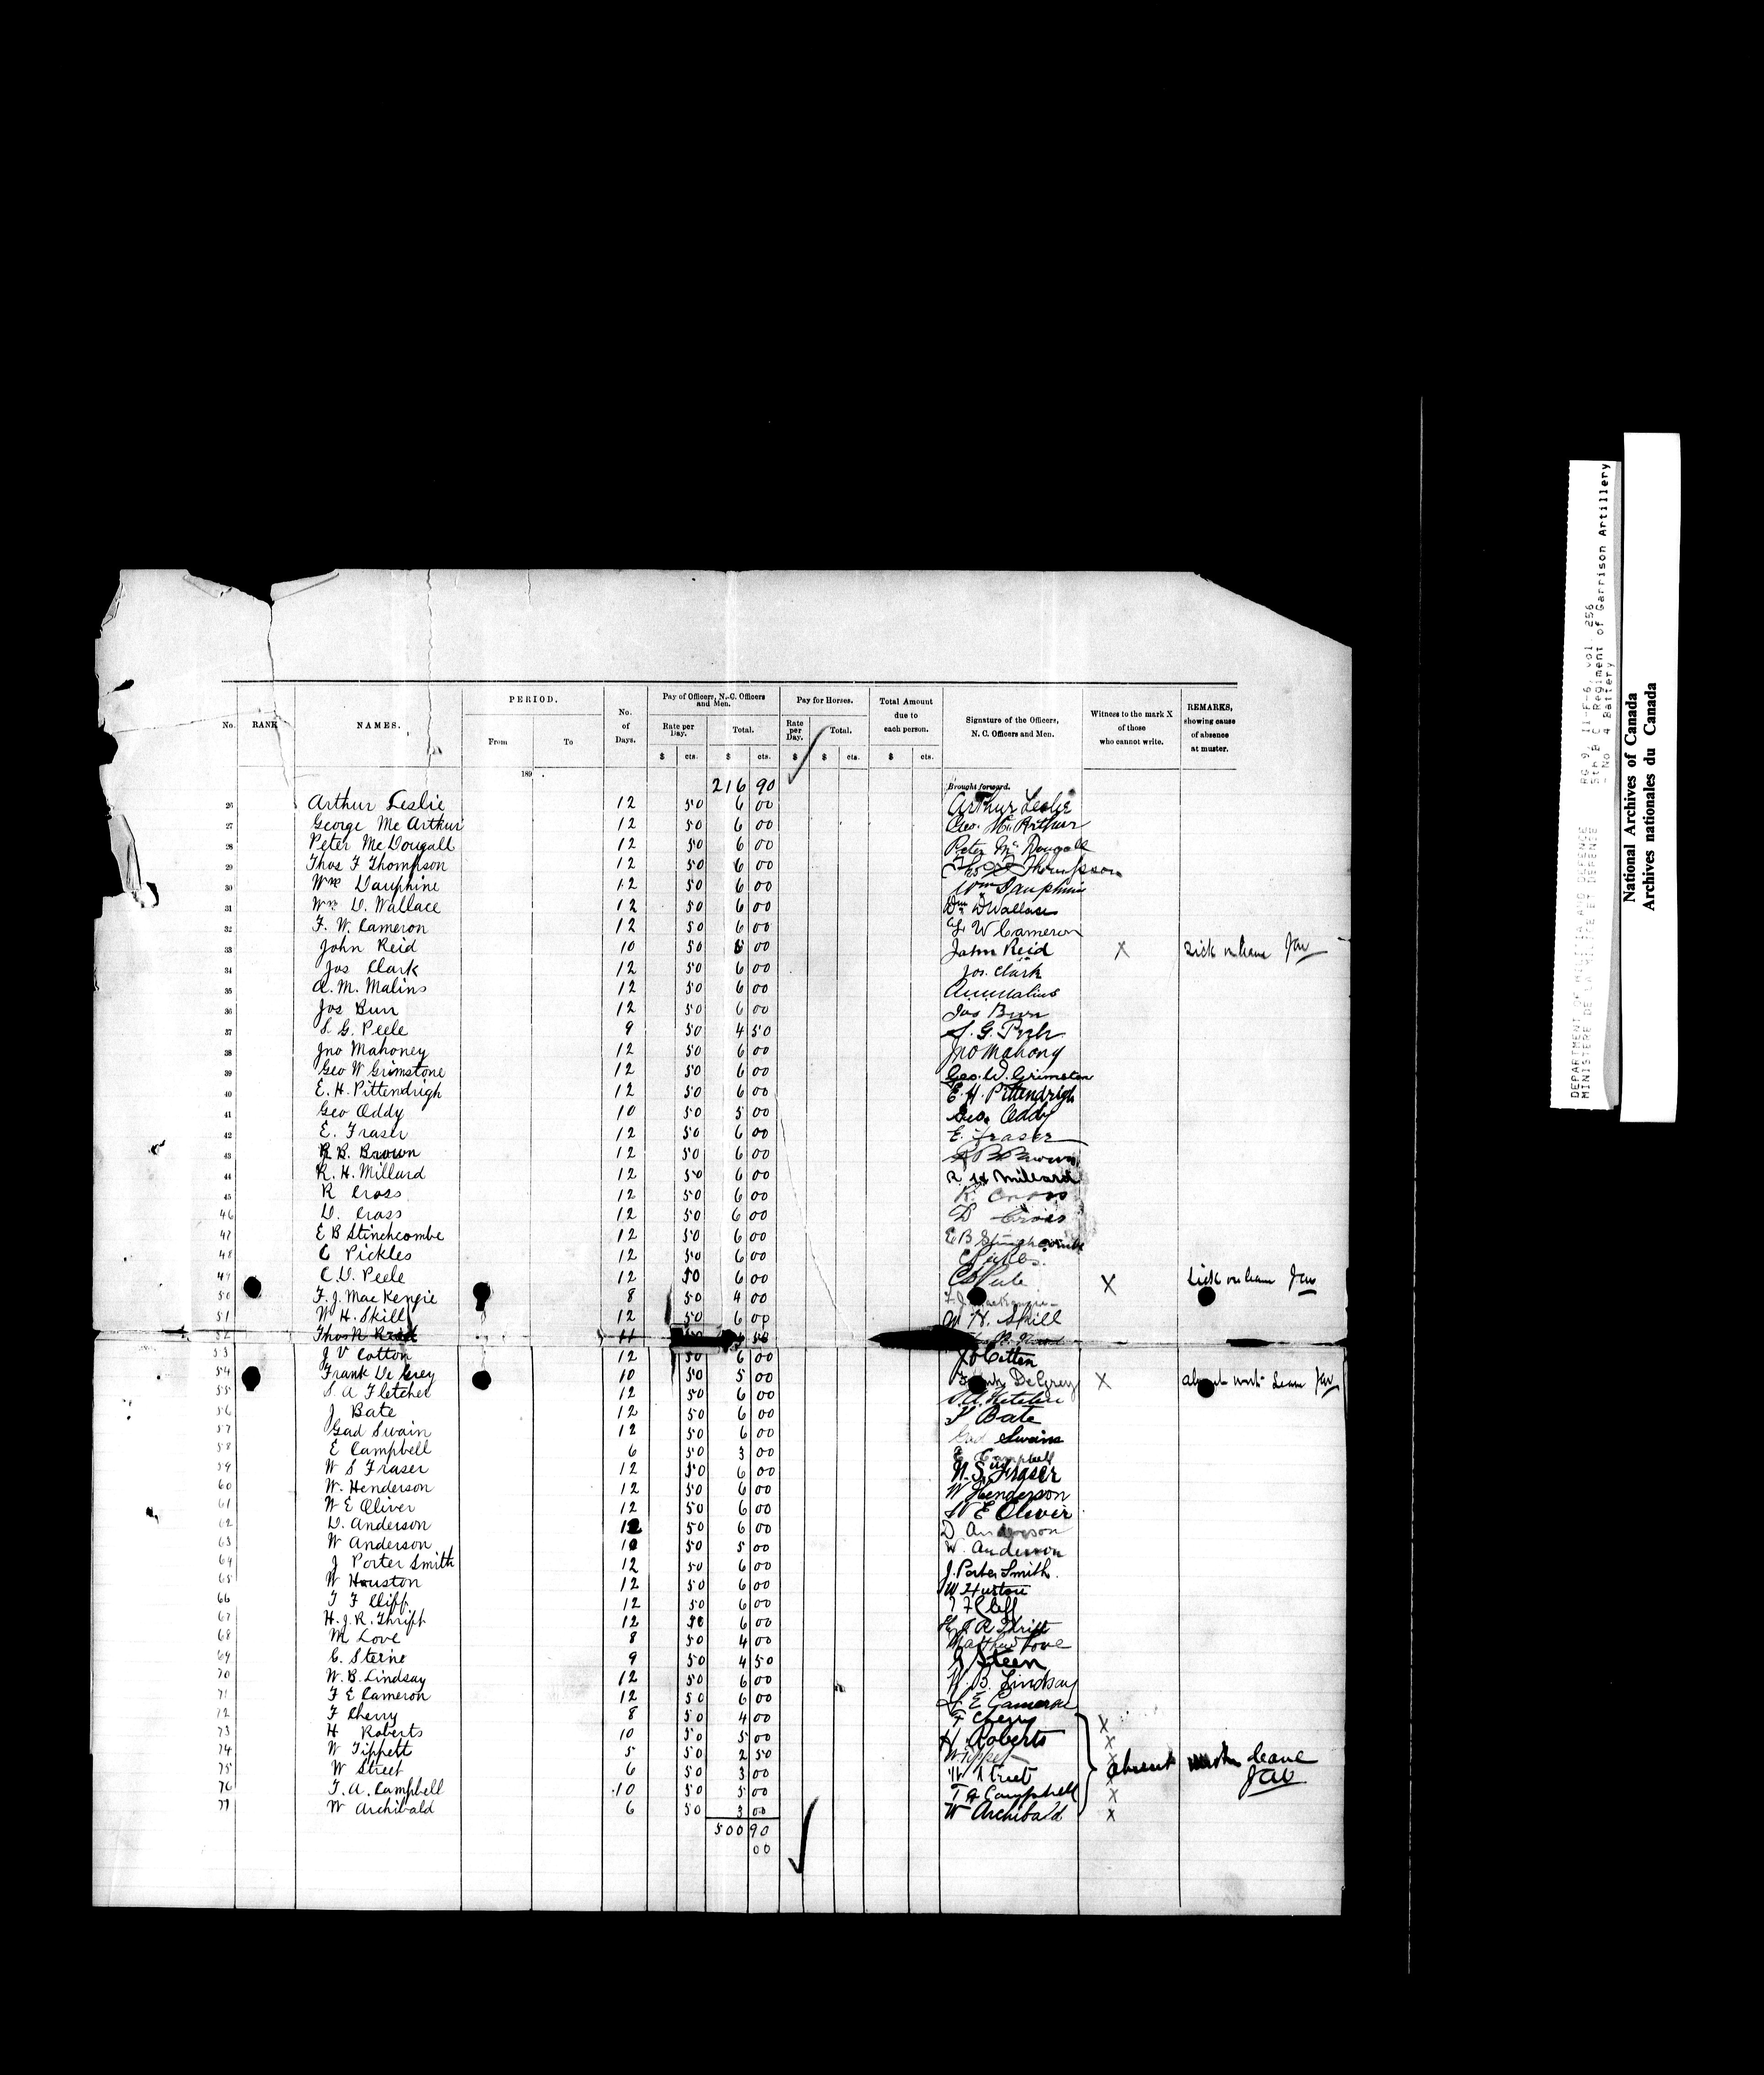 PERIOD.
Pay of Officers, N. C. Officers and Men.
Pay for Horses.
Total Amount due to each person.
No. RANK NAMES. From To No. of Days. Rate per Day. Total. Rate per Day. Total. Signature of the Officers, N. C. Officers and Men. Witness to the mark X of those who cannot write. REMARKS, showing cause of absence at muster.
$ cts. $ cts. $ $ cts. $ cts.
189 .
216 90 Brought forward.
26 Arthur Leslie 12 50 6 00 Arthur Leslie
27 George Mc Arthur 12 50 6 00 Geo. Mc Arthur
28 Peter McDougall 12 50 6 00 Peter Mc Dougall
29 Thos F Thompson 12 50 6 00 Thos F Thompson
30 Wm Dauphine 12 50 6 00 Wm Dauphine
31 Wm D. Wallace 12 50 6 00 Wm D Wallace
32 F. W. Cameron 12 50 6 00 F. W Cameron
33 John Reid 10 50 5 00 John Reid X Sick on leave JAW
34 Jas Clark 12 50 6 00 Jos. Clark
35 A. M. Malins 12 50 6 00 A.M.Malins
36 Jas Burr 12 50 6 00 Jas Burr
37 S. G. Peele 9 50 4 50 S. G. Peele
38 Jno Mahoney 12 50 6 00 Jno Mahony
39 Geo W Grimstone 12 50 6 00 Geo. W. Grimston
40 E. H. Pittendrigh 12 50 6 00 E. H. Pittendrigh
41 Geo Oddy 10 50 5 00 Geo. Oddy
42 E. Fraser 12 50 6 00 E. Fraser
43 R B. Brown 12 50 6 00 R B Brown
44 R. H. Millard 12 50 6 00 R. H Millard
45 R Cross 12 50 6 00 R. Cross
46 D. Cross 12 50 6 00 D Cross
47 E B Stinchcombe 12 50 6 00 E B Stinchcombe
48 C Pickles 12 50 6 00 C Pickles.
49 C. D. Peele 12 50 6 00 C D Peele X Sick on leave JAW
50 F. J. MacKenzie 8 50 4 00 F. J. MacKenzie
51 W H. Skill 12 50 6 00 W H. Skill
52 Thos R 11 50
53 J V Cotton 12 50 6 00 J V Cotten
54 Frank De Grey 10 50 5 00 Frank De Grey X absent without Leave JAW
55 S. A Fletcher 12 50 6 00 S.A. Fletcher
56 J Bate 12 50 6 00 J Bate
57 Gad Swain 12 50 6 00 Gad Swain
58 E Campbell 6 50 3 00 E Campbell
59 W S Fraser 12 50 6 00 W. S. Fraser
60 W. Henderson 12 50 6 00 W Henderson
61 W E Oliver 12 50 6 00 W E Oliver
62 D. Anderson 12 50 6 00 D Anderson
63 W Anderson 10 50 5 00 W. Anderson
64 J Porter Smith 12 50 6 00 J. Porter Smith.
65 W Houston 12 50 6 00 W Huston
66 T F Cliff 12 50 6 00 T F Cliff
67 H. J. R. Thrift 12 50 6 00 H. J. R. Thrift
68 M Love 8 50 4 00 Matthew Love
69 C. Steine 9 50 4 50 Steen
70 W. B. Lindsay 12 50 6 00 W. B. Lindsay
71 F E Cameron 12 50 6 00 F E Cameron
72 F Cherry 8 50 4 00 F Cherry X
73 H Roberts 10 50 5 00 H. Roberts X
74 W Tippett 5 50 2 50 W Tippett X absent without leave
75 W Street 6 50 3 00 W Street X JAW
76 T. A. Campbell 10 50 5 00 T A Campbell X
77 W Archibald 6 50 3 00 W Archibald X
500 90
00
DEPARTMENT OF MILITIA AND DEFENSE RG 9, II-F-6, vol. 256
MINISTERE DE LA MILICE ET DEFENSE 5th B C Regiment of Garrison Artillery
- No 4 Battery
National Archives of Canada
Archives nationales du Canada